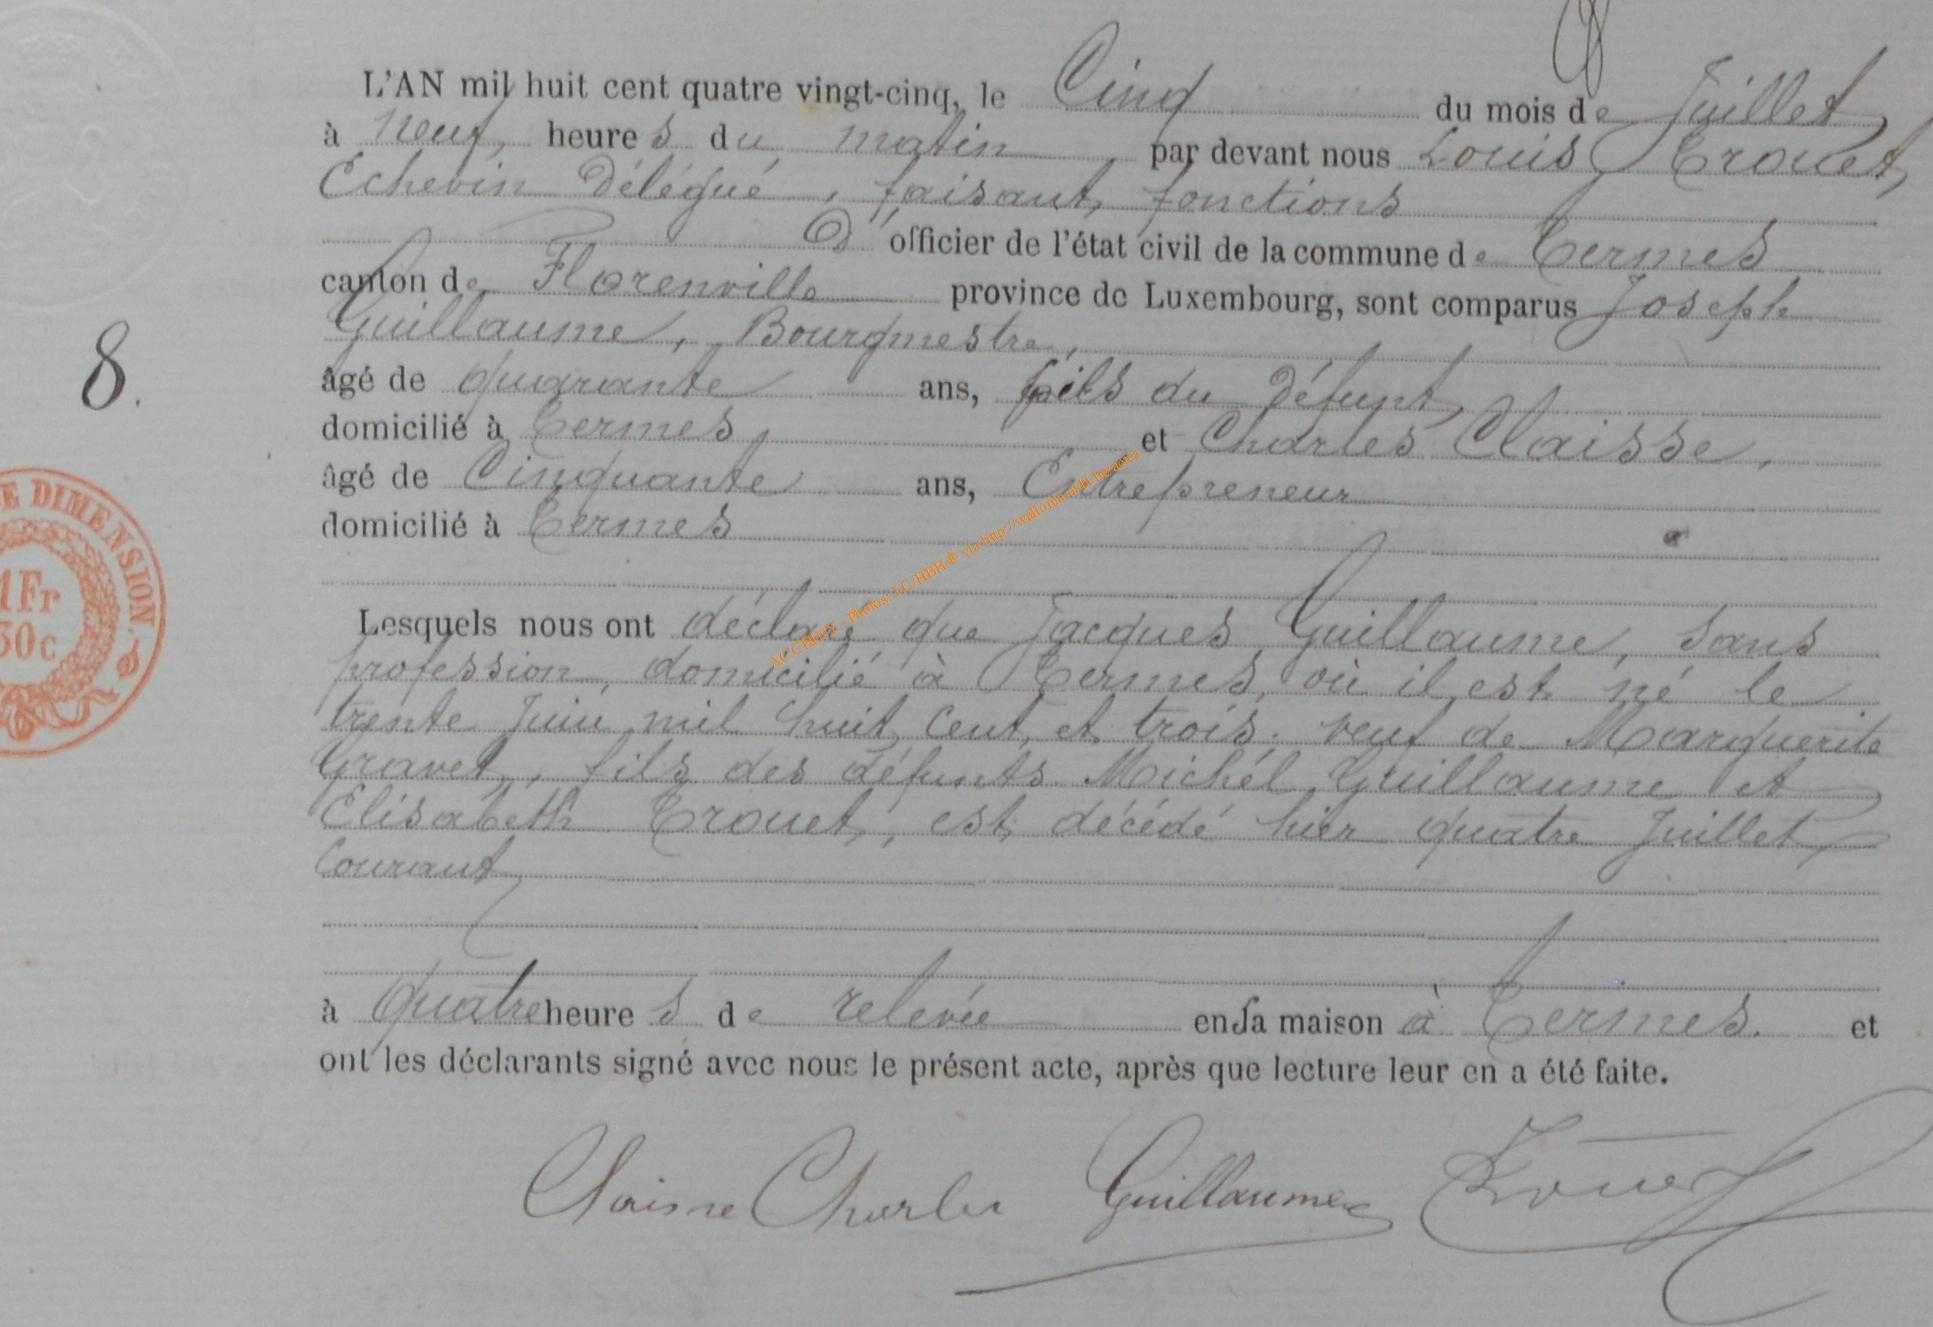 L'AN mil huit cent quatre vingt-cinq, le Cinq du mois de Juillet
à neuf heures du matin, par devant nous Louis Trouet,
Echevin Délégué, faisant fonctions
D'officier de l'état civil de la commune de Termes
canton de Florenville province de Luxembourg, sont comparus Joseph
Guillaume, Bourgmestre,
âgé de quarante ans, fils du Défunt,
domicilié à Termes, et Charles Claisse,
âgé de Cinquante ans, Entrepreneur
domicilié à Termes
8.
E DIMENSION.
1Fr
30c
AC CHINY - Photos: LC/HBH® via http://
Lesquels nous ont déclaré que Jacques Guillaume, sans
profession, domicilié à Termes, où il est né le
trente Juin mil huit cent et trois, veuf de Marguerite
Gravet, fils des défunts Michél Guillaume et
Elisabeth Trouet, est décédé hier quatre Juillet
Courant
à quatre heures de relevée en sa maison à Termes. et
ont les déclarants signé avec nous le présent acte, après que lecture leur en a été faite.
Claisse Charles Guillaume Trouet